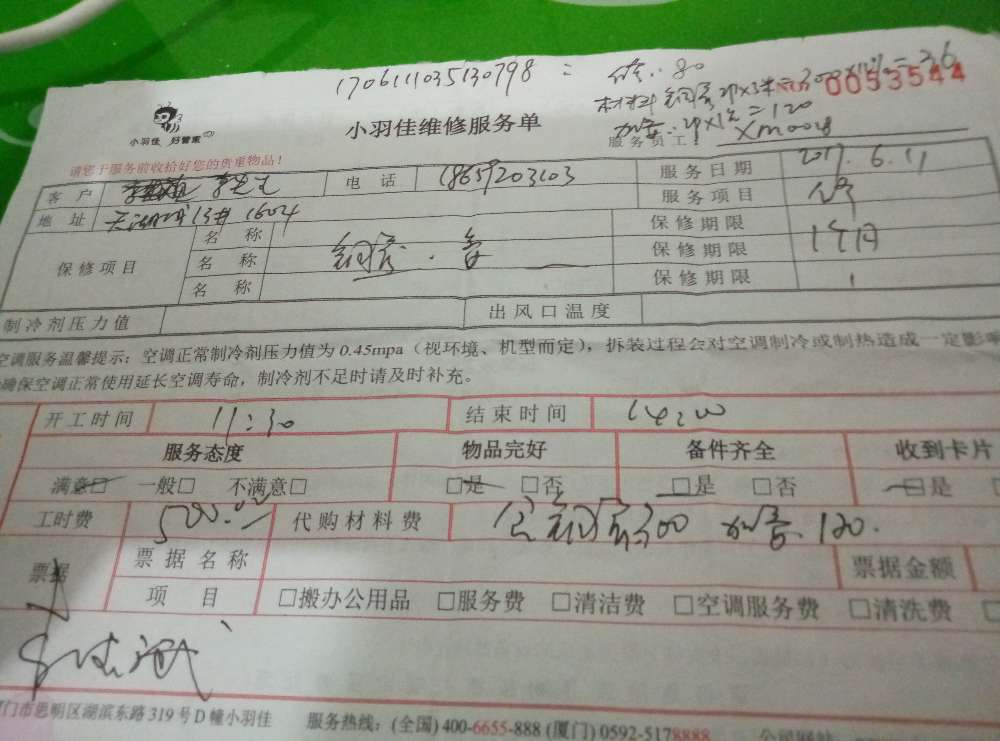 1706111035130798
修:80
0053544
材料铜管
加雪:
=120
小羽佳 好管家
小羽佳维修服务单
服务员工:
Xm0018
请您于服务前收拾好您的贵重物品!
客 户
电 话
18659203103
服务日期
2017.6.11
地 址
1604
服务项目
保修项目
名 称
保修期限
名 称
铜管.
保修期限
1个月
名 称
保修期限
制冷剂压力值
出风口温度
空调服务温馨提示:空调正常制冷剂压力值为0.45mpa(视环境、机型而定),拆装过程会对空调制冷或制热造成一定影响
确保空调正常使用延长空调寿命,制冷剂不足时请及时补充。
开工时间 11:30 结束时间 14:20
服务态度 物品完好 备件齐全 收到卡片
满意□ 一般□ 不满意□ □是 □否 □是 □否 □是
工时费 500.00 代购材料费 含铜管300 加雪120.
票据 票据名称 票据金额
项 目 □搬办公用品 □服务费 □清洁费 □空调服务费 □清洗费
厦门市思明区湖滨东路319号D幢小羽佳 服务热线:(全国)400-6655-888 (厦门)0592-5178888 公司网站